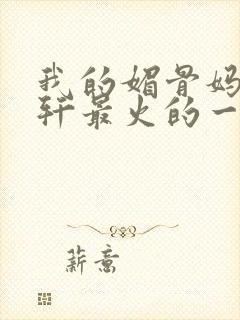 我的媚骨妈
轩最火的一
薪意